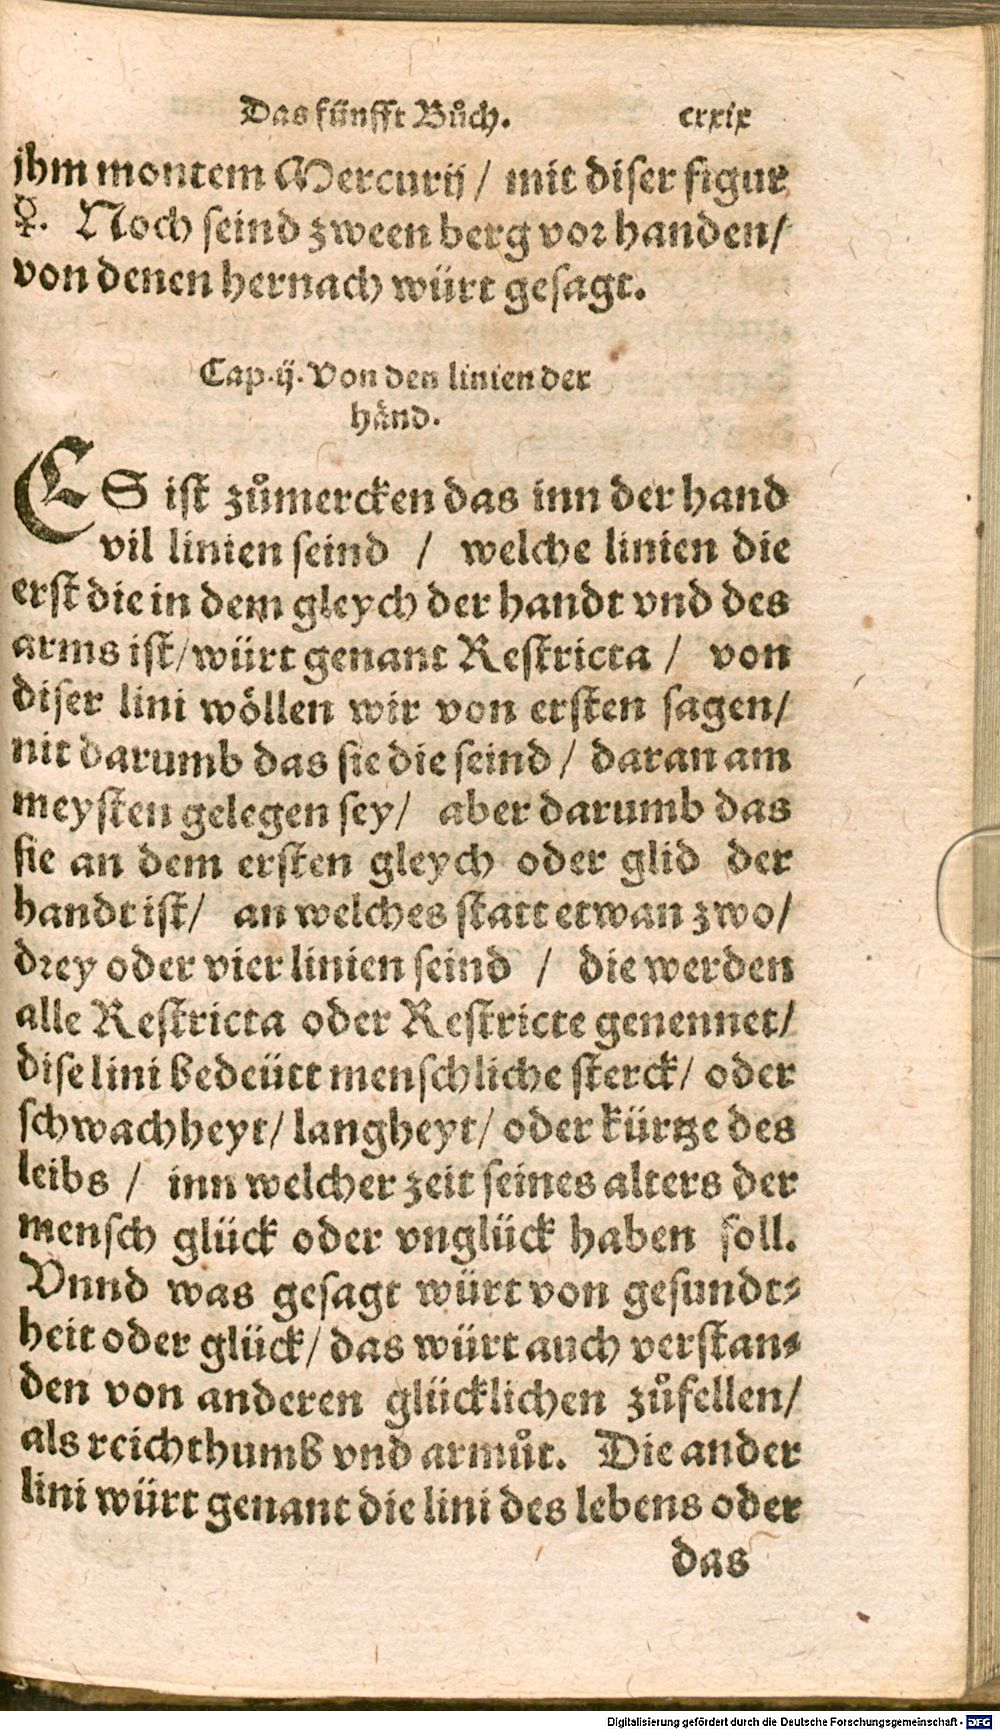 Das fünfft Bůch. cxxix
jhm montem Mercurij / mit diser figur
☿. Noch seind zween berg vorhanden /
von denen hernach würt gesagt.
Cap. ij. Von den linien der
händ.
ES ist zůmercken das inn der hand
vil linien seind / welche linien die
erst die in dem gleych der handt vnd des
arms ist / würt genant Restricta / von
diser lini wöllen wir von ersten sagen /
nit darumb das sie die seind / daran am
meysten gelegen sey / aber darumb das
sie an dem ersten gleych oder glid der
handt ist / an welches statt etwan zwo /
drey oder vier linien seind / die werden
alle Restricta oder Restricte genennet /
dise lini bedeütt menschliche sterck / oder
schwachheyt / langheyt / oder kürtze des
leibs / inn welcher zeit seines alters der
mensch glück oder vnglück haben soll.
Vnnd was gesagt würt von gesundt⸗
heit oder glück / das würt auch verstan⸗
den von anderen glücklichen zůfellen /
als reichthumb vnd armůt. Die ander
lini würt genant die lini des lebens oder
das
Digitalisierung gefördert durch die Deutsche Forschungsgemeinschaft - DFG